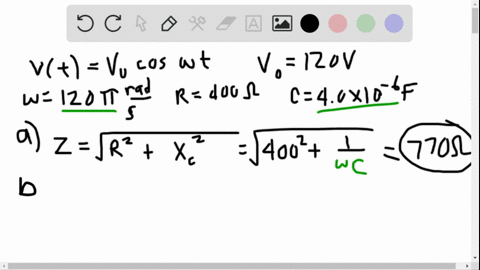 V(t) = V₀ cos wt V₀ = 120V
w = 120π rad/s R = 400Ω C = 4.0×10⁻⁶F
a) Z = √(R² + Xc²) = √(400² + 1/wC) = 770Ω
b